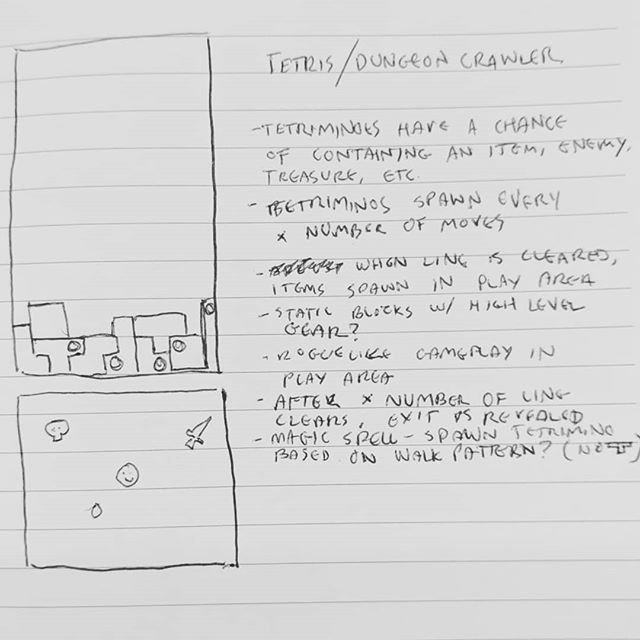 TETRIS/DUNGEON CRAWLER
-TETRIMINOES HAVE A CHANCE
OF CONTAINING AN ITEM, ENEMY,
TREASURE, ETC.
- TETRIMINOS SPAWN EVERY
X NUMBER OF MOVES
- WHEN LINE IS CLEARED,
ITEMS SPAWN IN PLAY AREA
- STATIC BLOCKS W/ HIGH LEVEL
GEAR?
- ROGUELIKE GAMEPLAY IN
PLAY AREA
- AFTER X NUMBER OF LINE
CLEARS, EXIT IS REVEALED
- MAGIC SPELL - SPAWN TETRIMINO
BASED ON WALK PATTERN? (NO